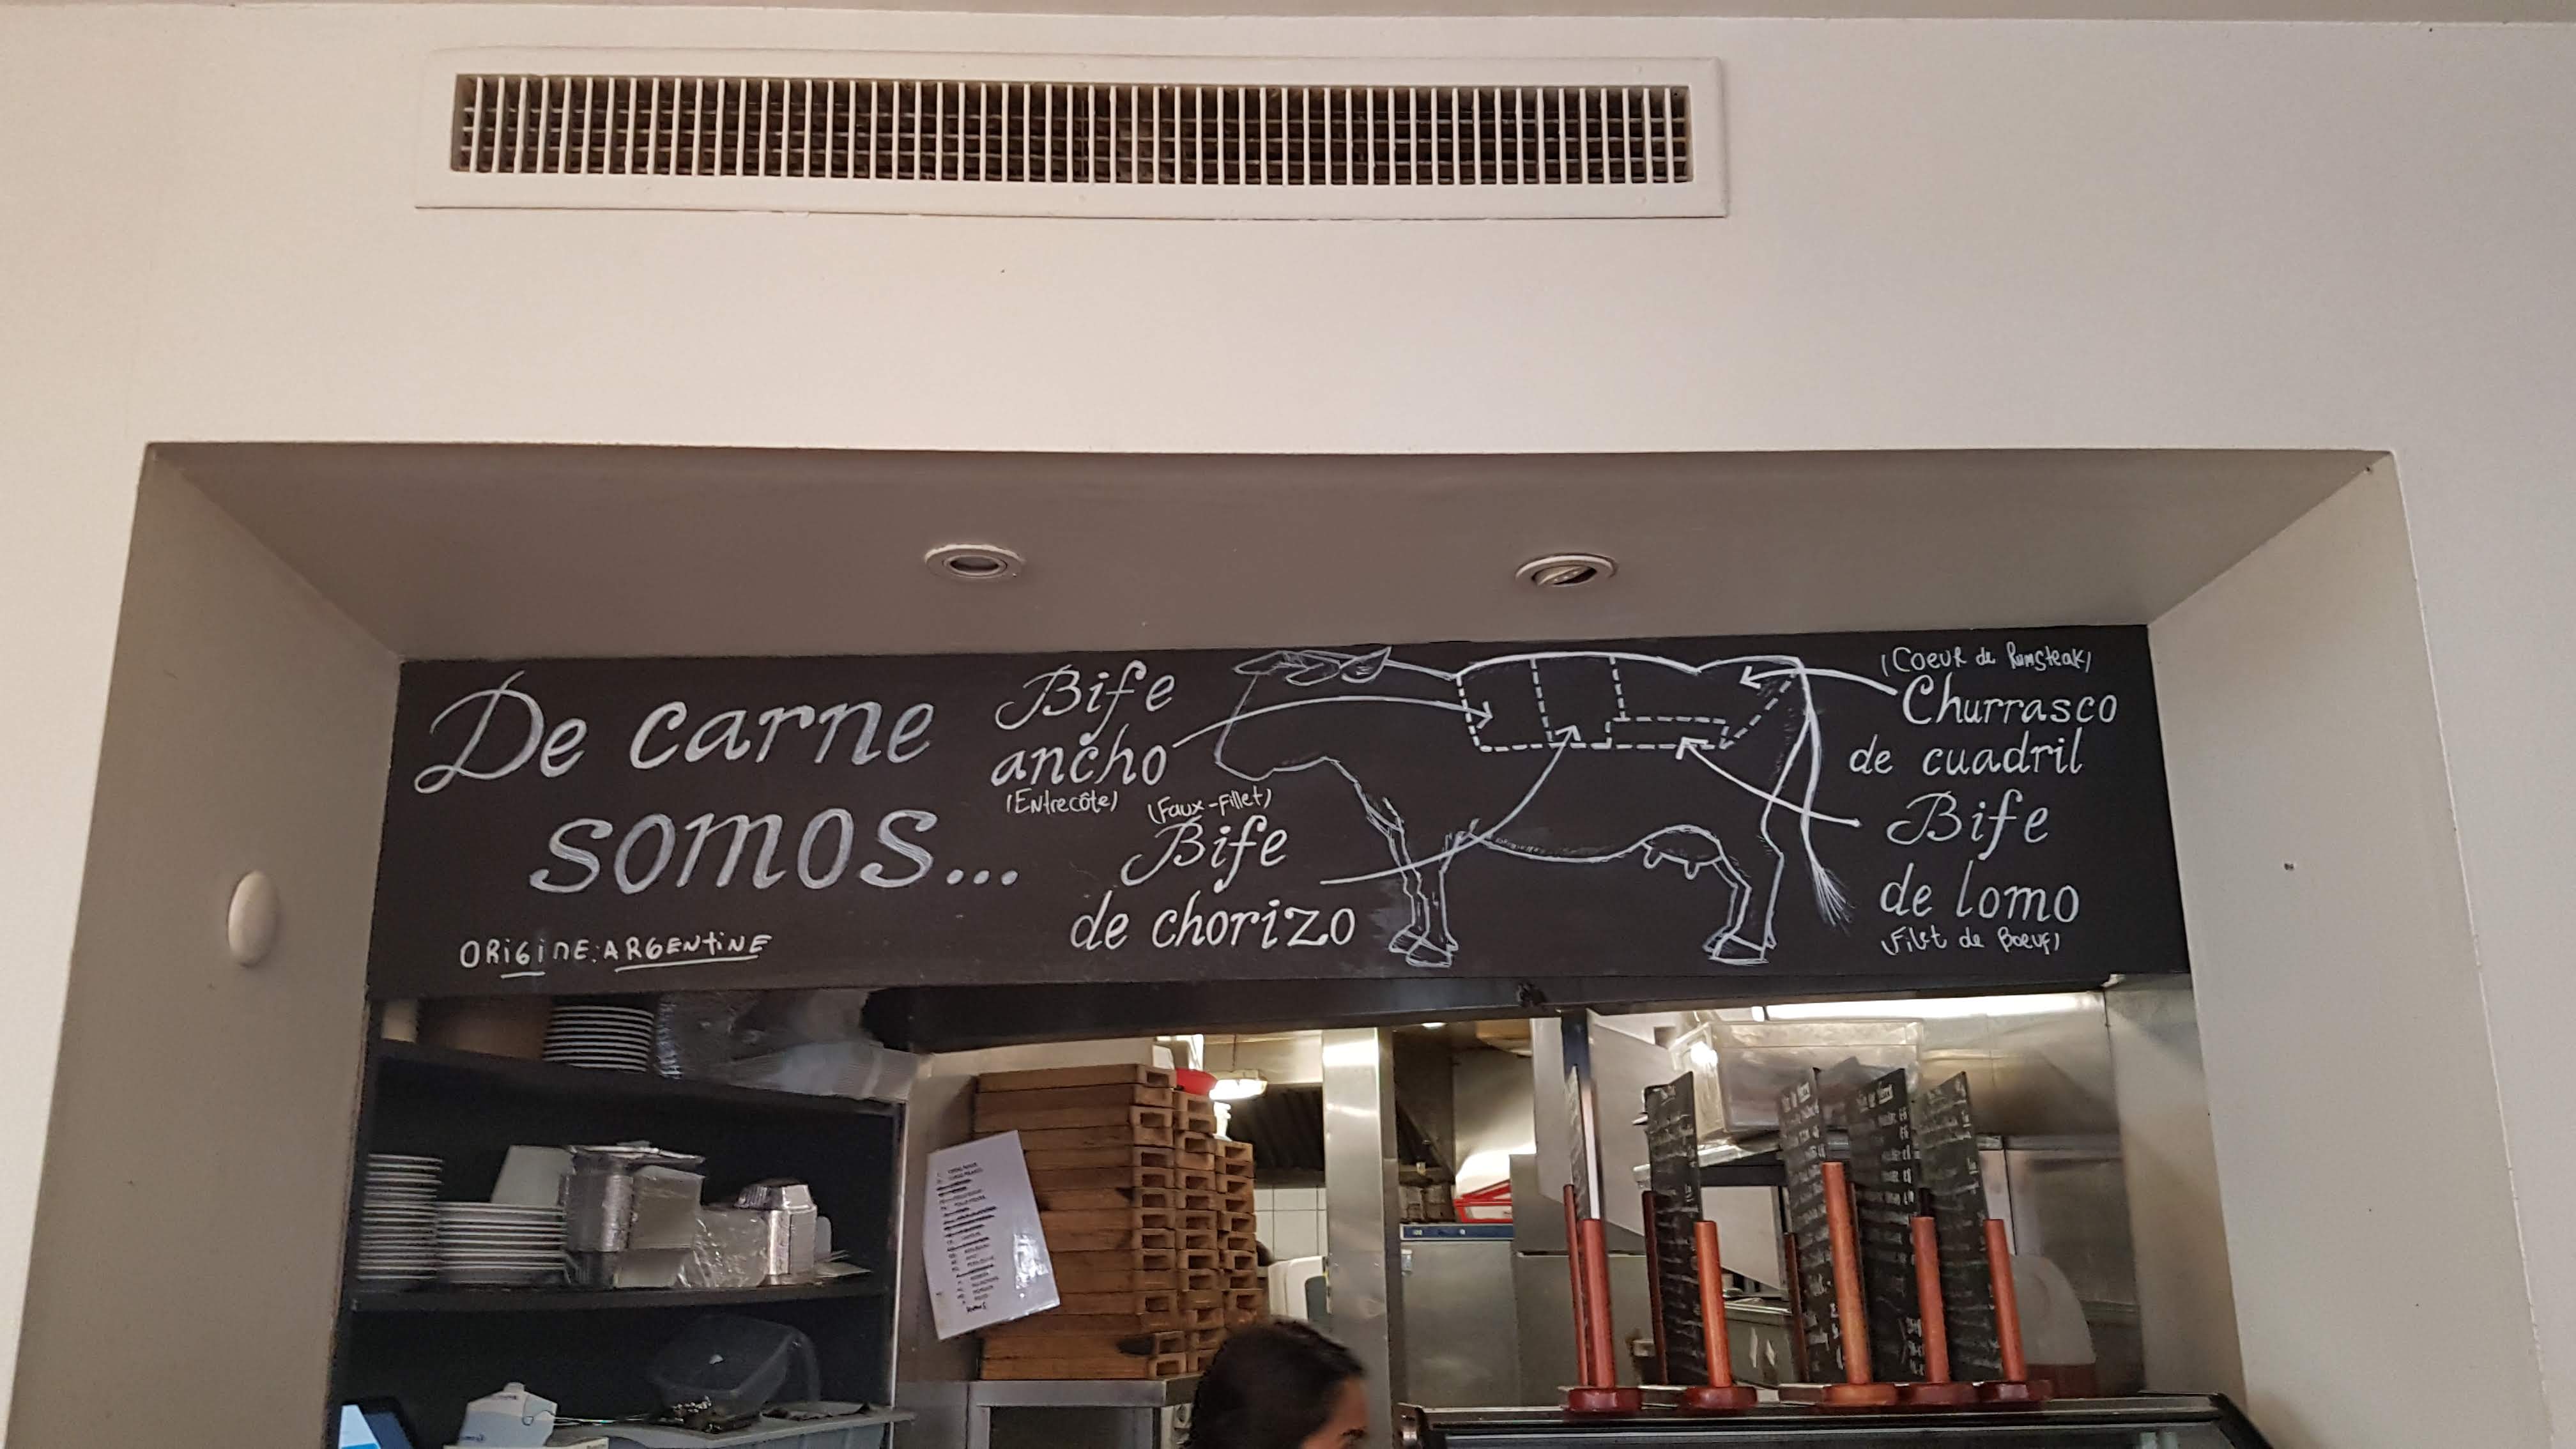 De carne
somos...
ORiGiNE: ARGENtiNE
Bife
ancho
(Entrecôte)
(Faux-Fillet)
Bife
de chorizo
(Coeur de Rumsteak)
Churrasco
de cuadril
Bife
de lomo
(Filet de Boeuf)